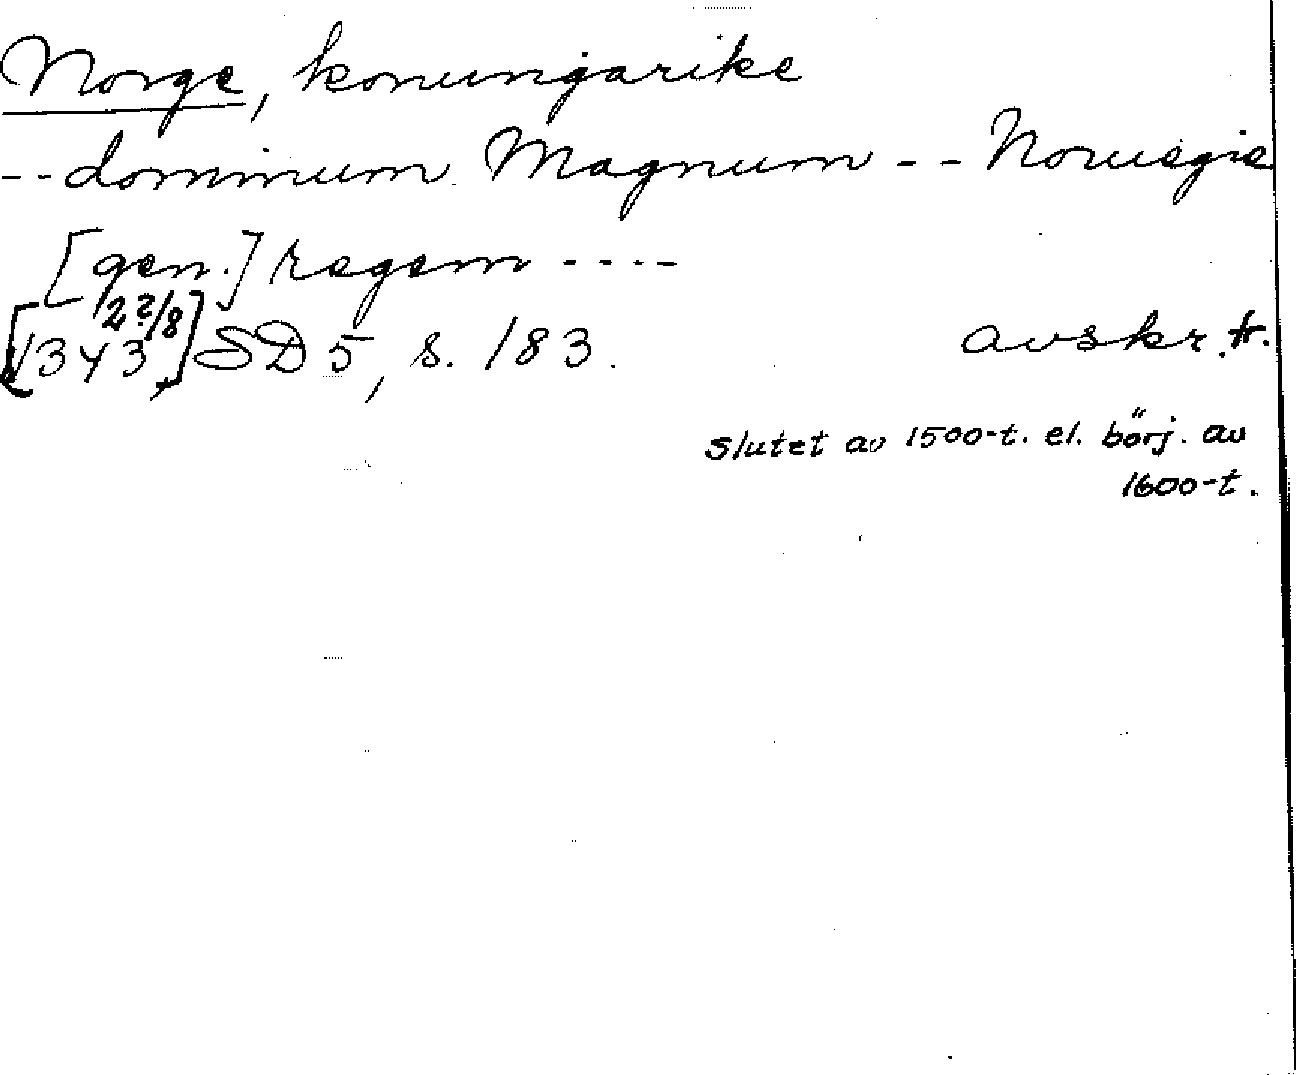 Norge, konungarike
-- dominum Magnum -- Noruegie
[gen.] regem ----
[1343 2?/8] SD 5, s. 183. avskr. fr.
slutet av 1500-t. el. börj. av
1600-t.